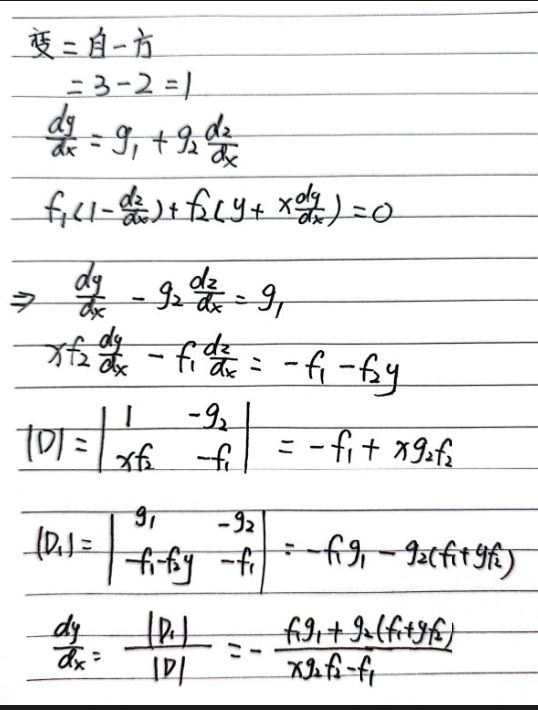 变 = 自 - 方
= 3 - 2 = 1
dy/dx = g₁ + g₂ dz/dx
f₁(1 - dz/dx) + f₂(y + x dy/dx) = 0
⇒ dy/dx - g₂ dz/dx = g₁
xf₂ dy/dx - f₁ dz/dx = -f₁ - f₂y
|D| = | 1 -g₂ ; xf₂ -f₁ | = -f₁ + xg₂f₂
|D₁| = | g₁ -g₂ ; -f₁-f₂y -f₁ | = -f₁g₁ - g₂(f₁+yf₂)
dy/dx = |D₁|/|D| = - (f₁g₁ + g₂(f₁+yf₂))/(xg₂f₂-f₁)